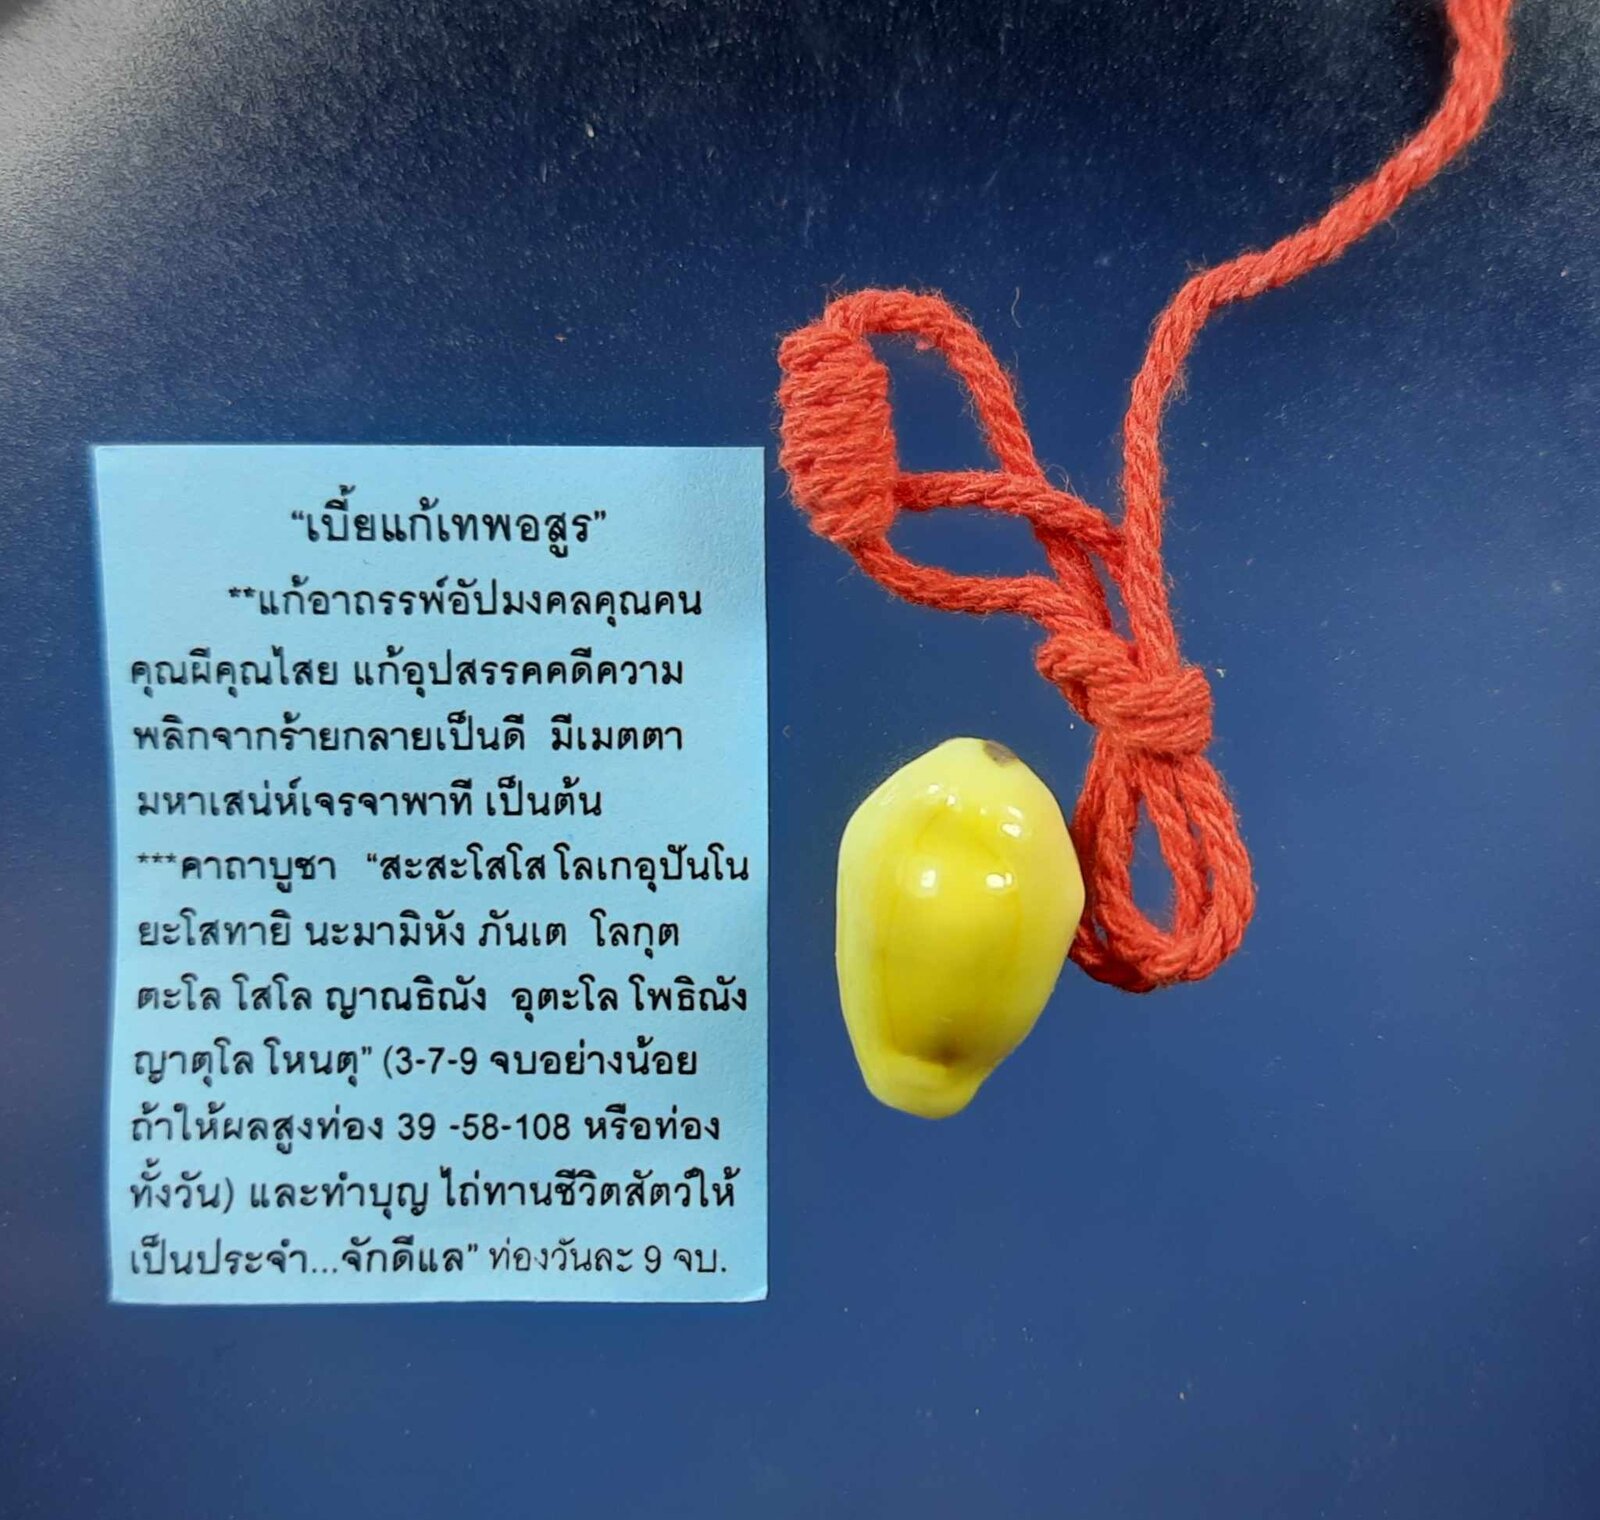 “เบี้ยแก้เทพอสูร”
**แก้อาถรรพ์อัปมงคลคุณคน
คุณผีคุณไสย แก้อุปสรรคคดีความ
พลิกจากร้ายกลายเป็นดี มีเมตตา
มหาเสน่ห์เจรจาพาที เป็นต้น
***คาถาบูชา “สะสะโสโส โลเกอุปันโน
ยะโสทายิ นะมามิหัง ภันเต โลกุต
ตะโล โสโล ญาณธิณัง อุตะโล โพธิณัง
ญาตุโล โหนตุ” (3-7-9 จบอย่างน้อย
ถ้าให้ผลสูงท่อง 39 -58-108 หรือท่อง
ทั้งวัน) และทำบุญ ไถ่ทานชีวิตสัตว์ให้
เป็นประจำ...จักดีแล” ท่องวันละ 9 จบ.